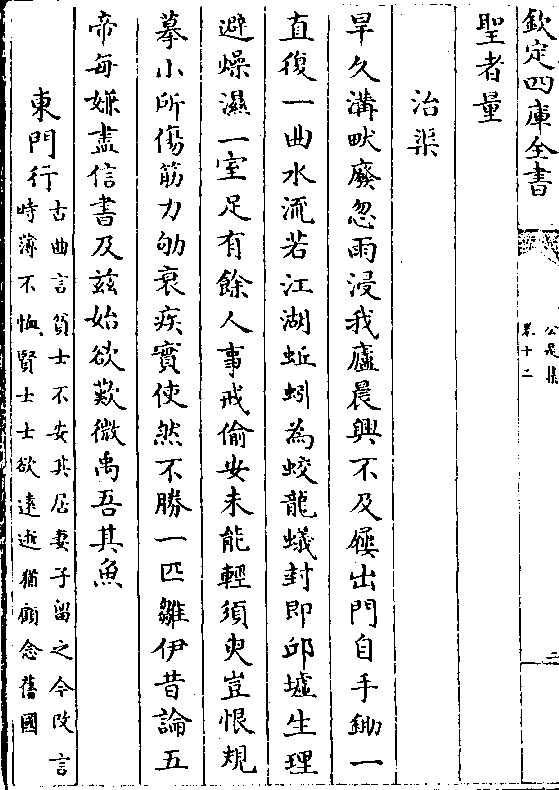 欽定四庫全書
公是集
卷十二
二
聖者量
治渠
旱久溝畎廢忽雨浸我廬晨興不及屨出門自手鋤一
直復一曲水流若江湖蚯蚓為蛟龍蟻封即邱墟生理
避燥濕一室足有餘人事戒偷安未能輕須臾豈恨規
摹小所傷筋力劬衰疾實使然不勝一匹雛伊昔論五
帝每嫌盡信書及茲始欲歎微禹吾其魚
東門行
古曲言貧士不安其居妻子留之今改言
時薄不恤賢士士欲遠逝猶顧念舊國